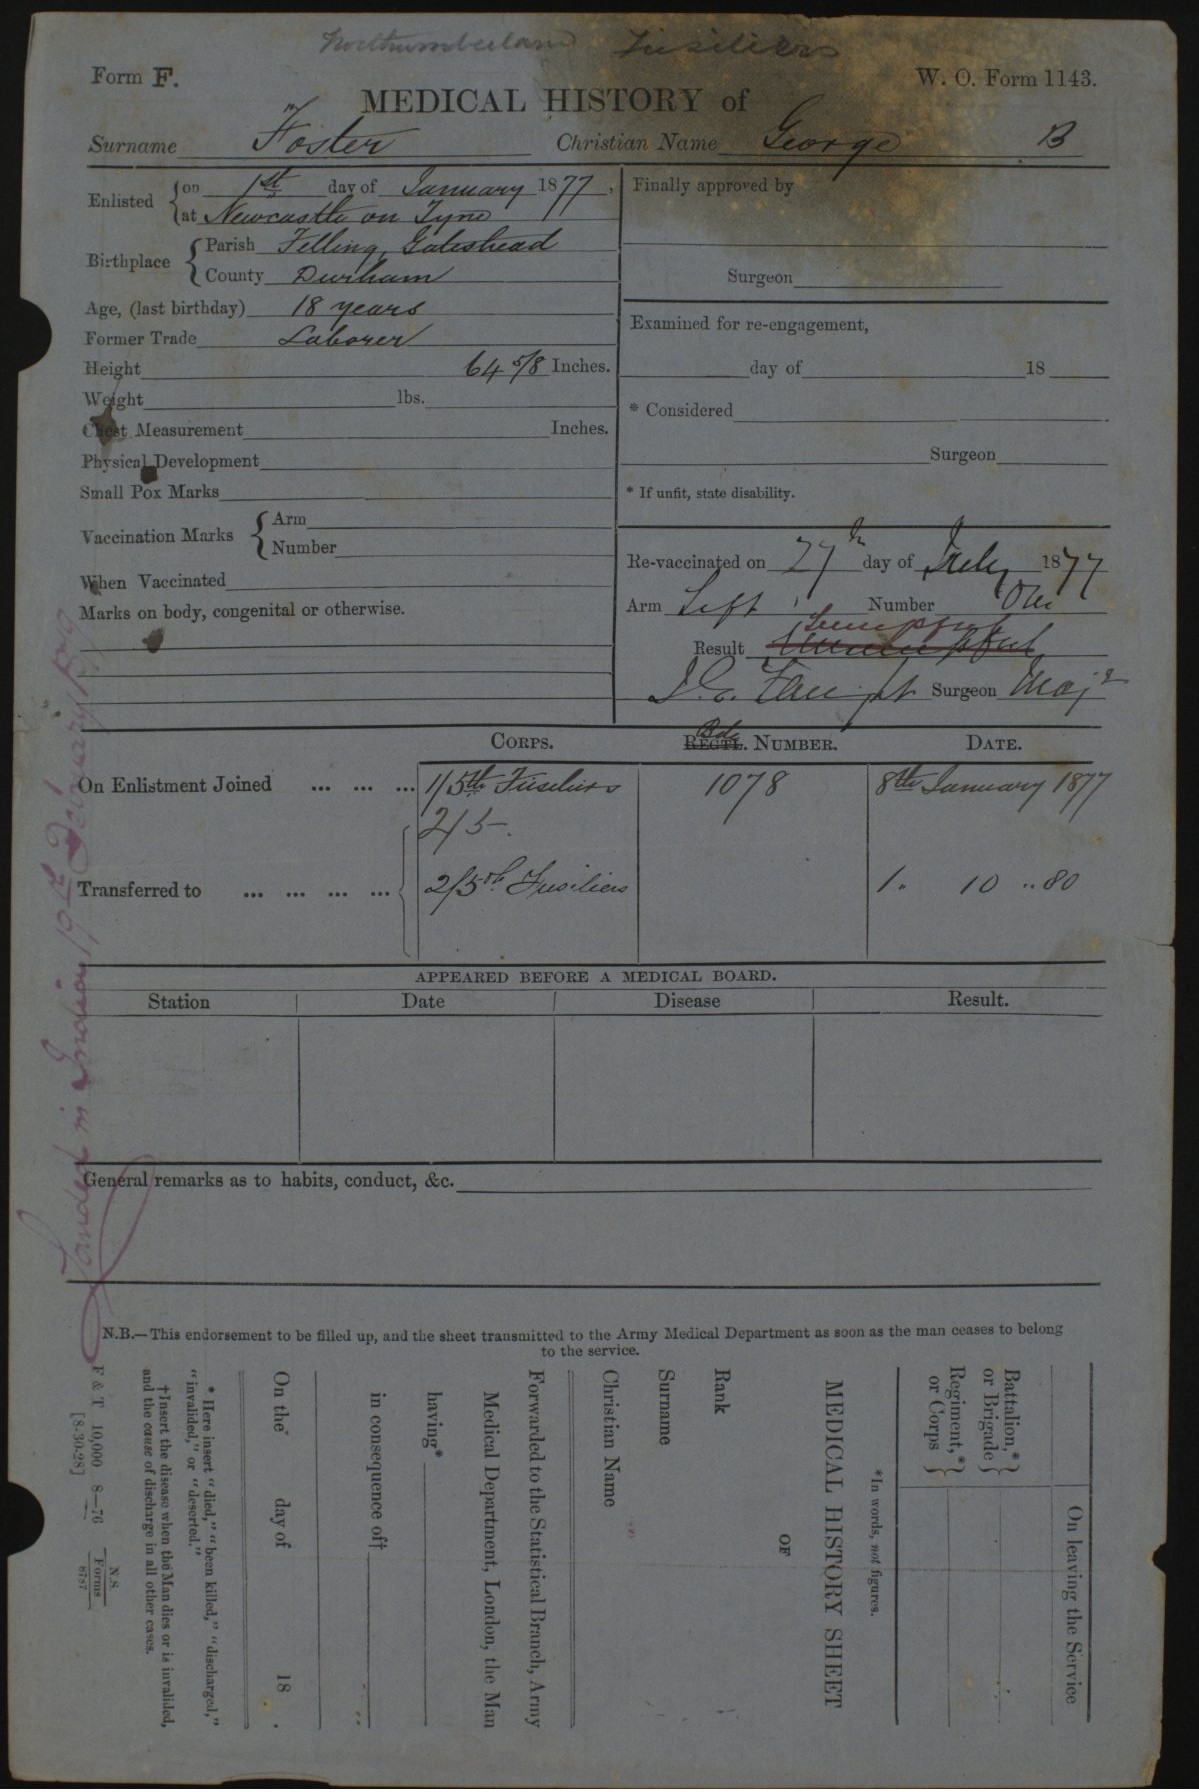 Northumberland Fusiliers
Form F.
W. O. Form 1143.
MEDICAL HISTORY of
Surname Foster Christian Name George B
Enlisted { on 1st day of January 1877,
at Newcastle on Tyne
Birthplace { Parish Felling, Gateshead
County Durham
Age, (last birthday) 18 years
Former Trade Laborer
Height 64 5/8 Inches.
Weight lbs.
Chest Measurement Inches.
Physical Development
Small Pox Marks
Vaccination Marks { Arm
Number
When Vaccinated
Marks on body, congenital or otherwise.
Finally approved by
Surgeon
Examined for re-engagement,
day of 18
* Considered
Surgeon
* If unfit, state disability.
Re-vaccinated on 27th day of July 1877
Arm Left Number One
Result
Surgeon Majr
CORPS. Bde REGTL. NUMBER. DATE.
On Enlistment Joined ... ... ... 1/5th Fusiliers 1078 8th January 1877
2/5.
Transferred to ... ... ... ... 2/5th Fusiliers 1 " 10 " 80
APPEARED BEFORE A MEDICAL BOARD.
Station Date Disease Result.
General remarks as to habits, conduct, &c.
Landed in India 19th
N.B.—This endorsement to be filled up, and the sheet transmitted to the Army Medical Department as soon as the man ceases to belong
to the service.
On leaving the Service
Battalion,*
or Brigade }
Regiment,*
or Corps }
*In words, not figures.
MEDICAL HISTORY SHEET
OF
Rank
Surname
Christian Name
Forwarded to the Statistical Branch, Army
Medical Department, London, the Man
having*
in consequence of†
On the day of 18 .
* Here insert "died," "been killed," "discharged,"
"invalided," or "deserted."
†Insert the disease when the Man dies or is invalided,
and the cause of discharge in all other cases.
F & T 10,000 8—76 N.S.
Forms
8787
[8.30.28]